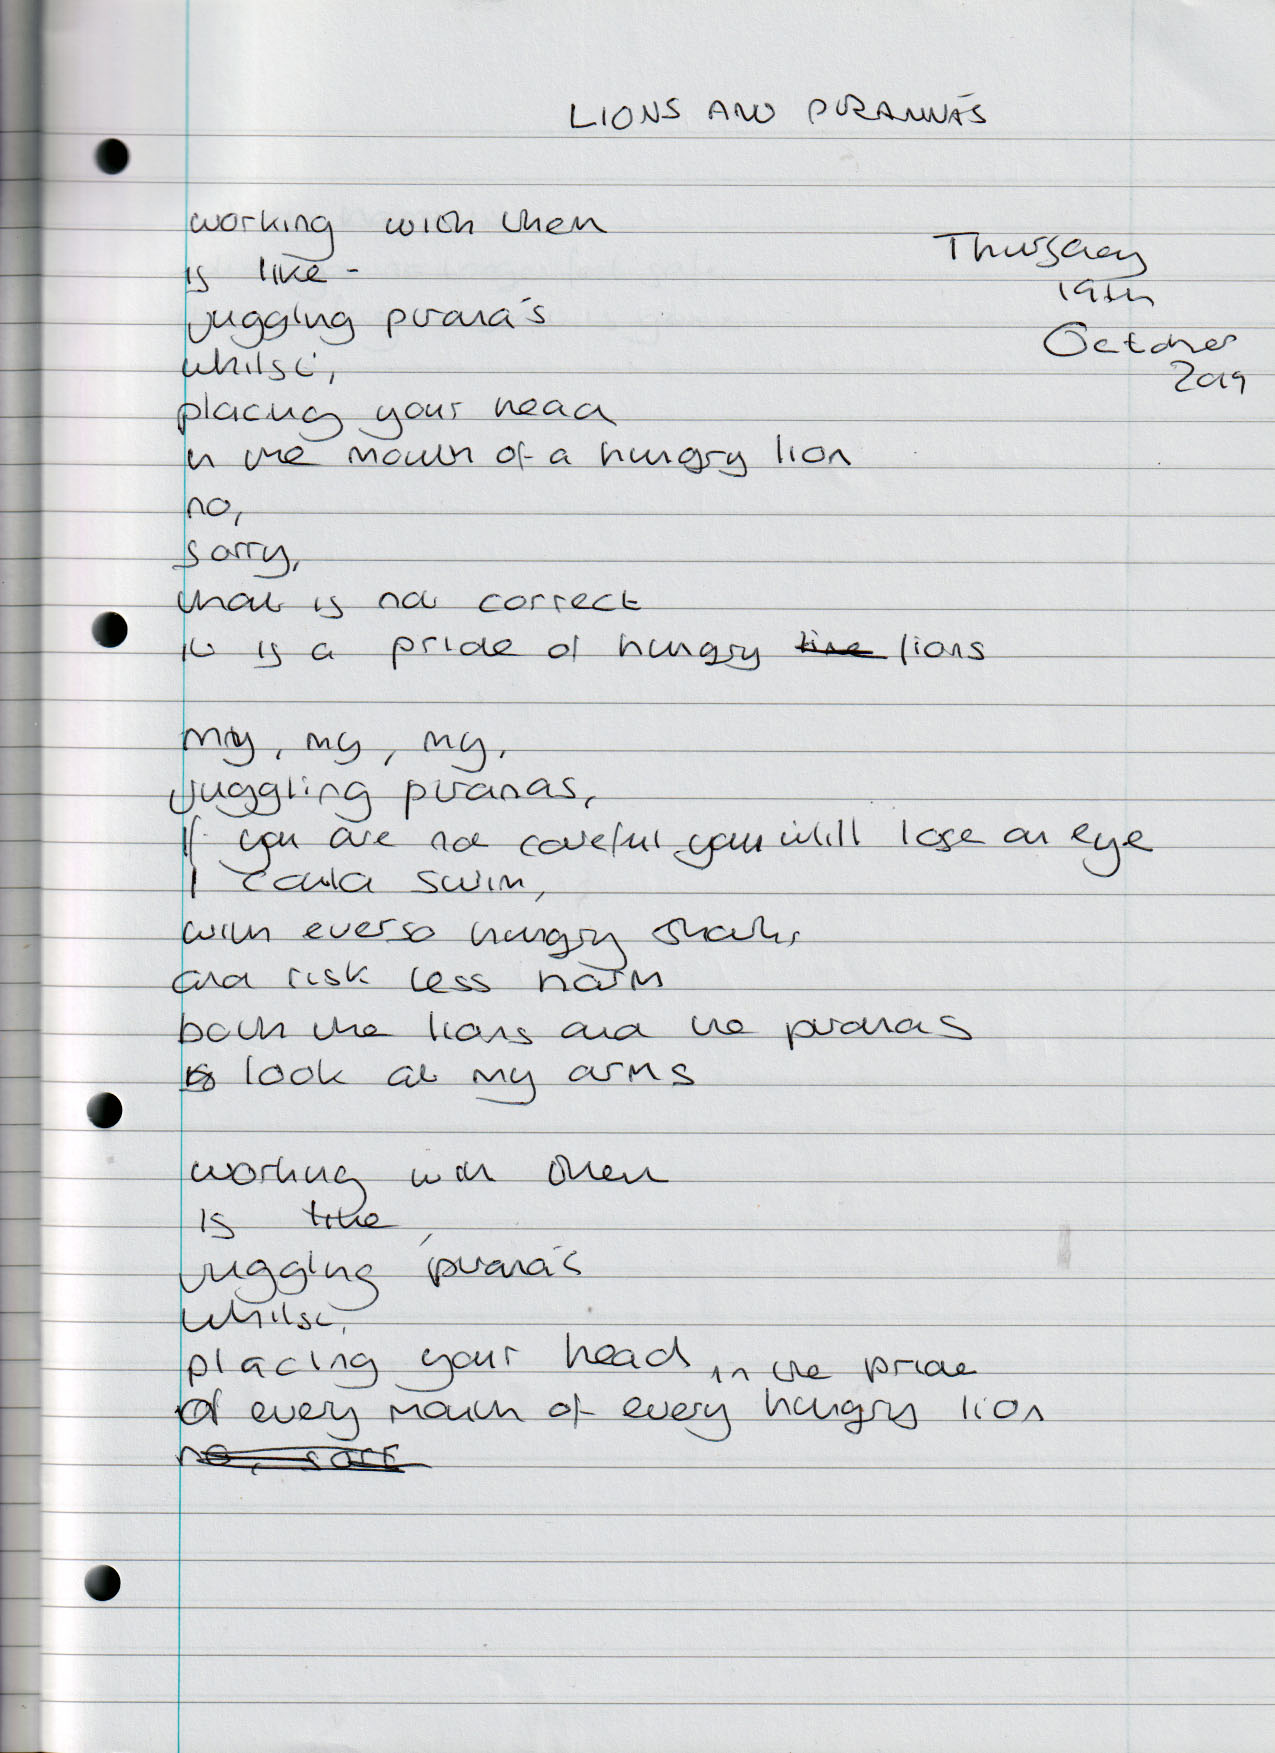 LIONS AND PIRANNA'S
working with them
is like -
Thursday
19th
October
2019
juggling pirana's
whilst,
placing your head
in the mouth of a hungry lion
no,
sorry,
that is not correct
it is a pride of hungry line lions
my, my, my,
juggling piranas,
if you are not careful you will lose an eye
I could swim,
with everso hungry sharks
and risk less harm
both the lions and the piranas
look at my arms
working with them
is like,
juggling pirana's
whilst,
placing your head in the pride
of every mouth of every hungry lion
no, sorr